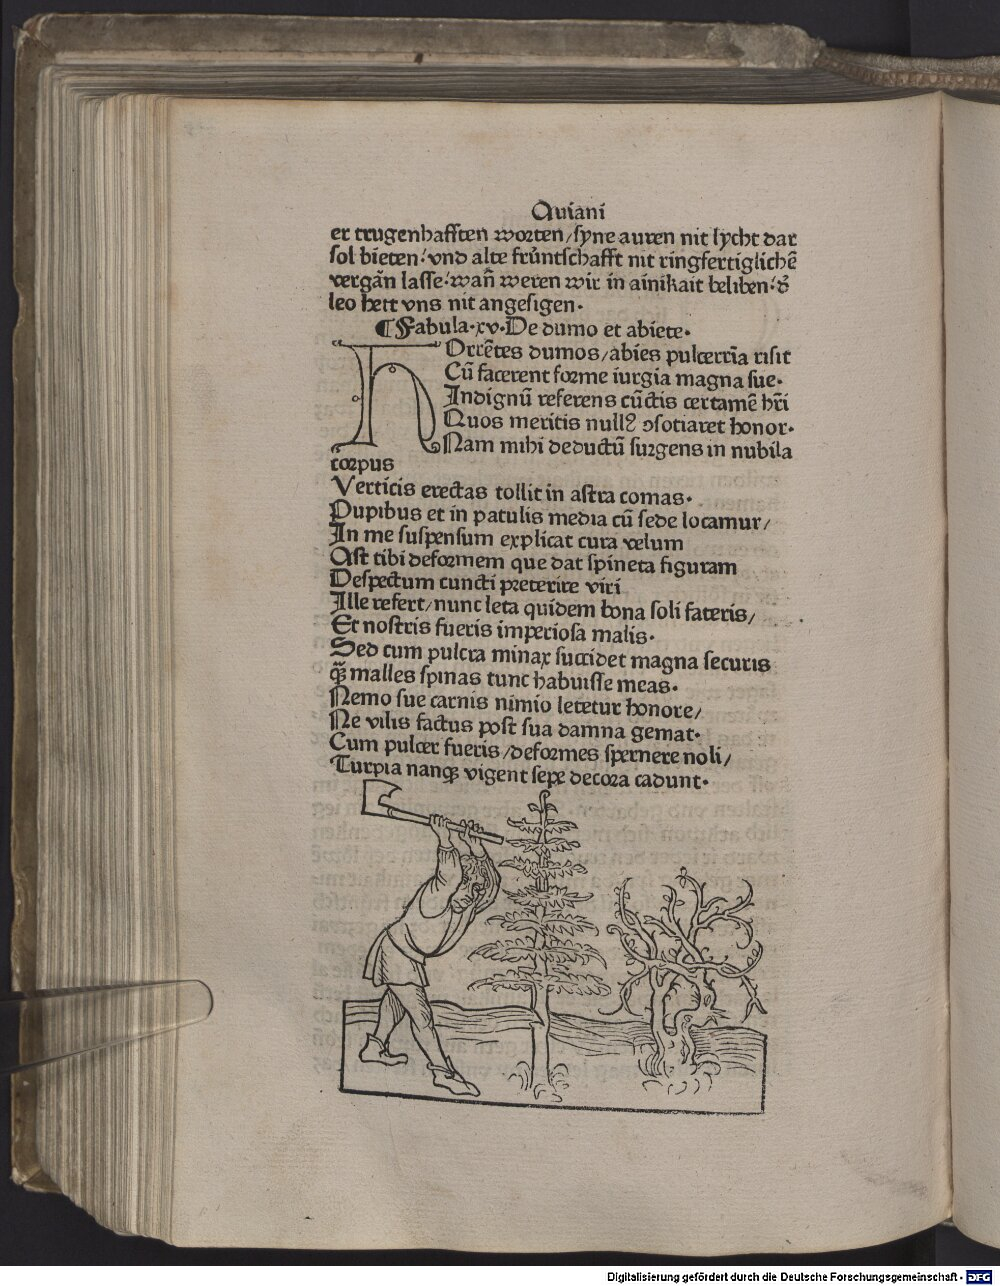 Auiani
er trugenhafften worten/syne auren nit lycht dar
sol bieten: vnd alte frúntschafft nit ringfertiglichē
vergān lasse: wañ weren wir in ainikait beliben: d̄
leo hett vns nit angesigen.
¶ Fabula.xv.De dumo et abiete.
HOrrētes dumos/abies pulcerrīa risit
Cū facerent forme iurgia magna sue.
Indignū referens cūctis certamē hr̄i
Quos meritis nullꝰ ↄsotiaret honor.
Nam mihi deductū surgens in nubila
corpus
Verticis erectas tollit in astra comas.
Pupibus et in patulis media cū sede locamur/
In me suspensum explicat cura velum
Ast tibi deformem que dat spineta figuram
Despectum cuncti preterire viri
Ille refert/nunc leta quidem bona soli fateris/
Et nostris fueris imperiosa malis.
Sed cum pulcra minax succidet magna securis
q̄ꝫ malles spinas tunc habuisse meas.
Nemo sue carnis nimio letetur honore/
Ne vilis factus post sua damna gemat.
Cum pulcer fueris/deformes spernere noli/
Turpia nanqꝫ vigent sepe decora cadunt.
Digitalisierung gefördert durch die Deutsche Forschungsgemeinschaft - DFG